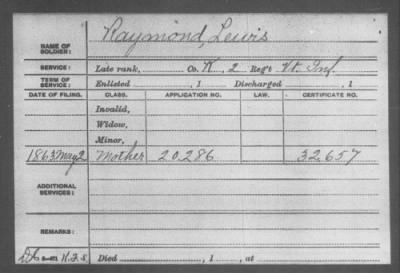 NAME OF SOLDIER: Raymond, Lewis
SERVICE: Late rank, Co. K, 2 Reg't Vt. Inf.
TERM OF SERVICE: Enlisted , 1 Discharged , 1
DATE OF FILING. CLASS. APPLICATION NO. LAW. CERTIFICATE NO.
Invalid,
Widow,
Minor,
1863 May 2 Mother 20.286 32.657
ADDITIONAL SERVICES:
REMARKS:
Died , 1 , at